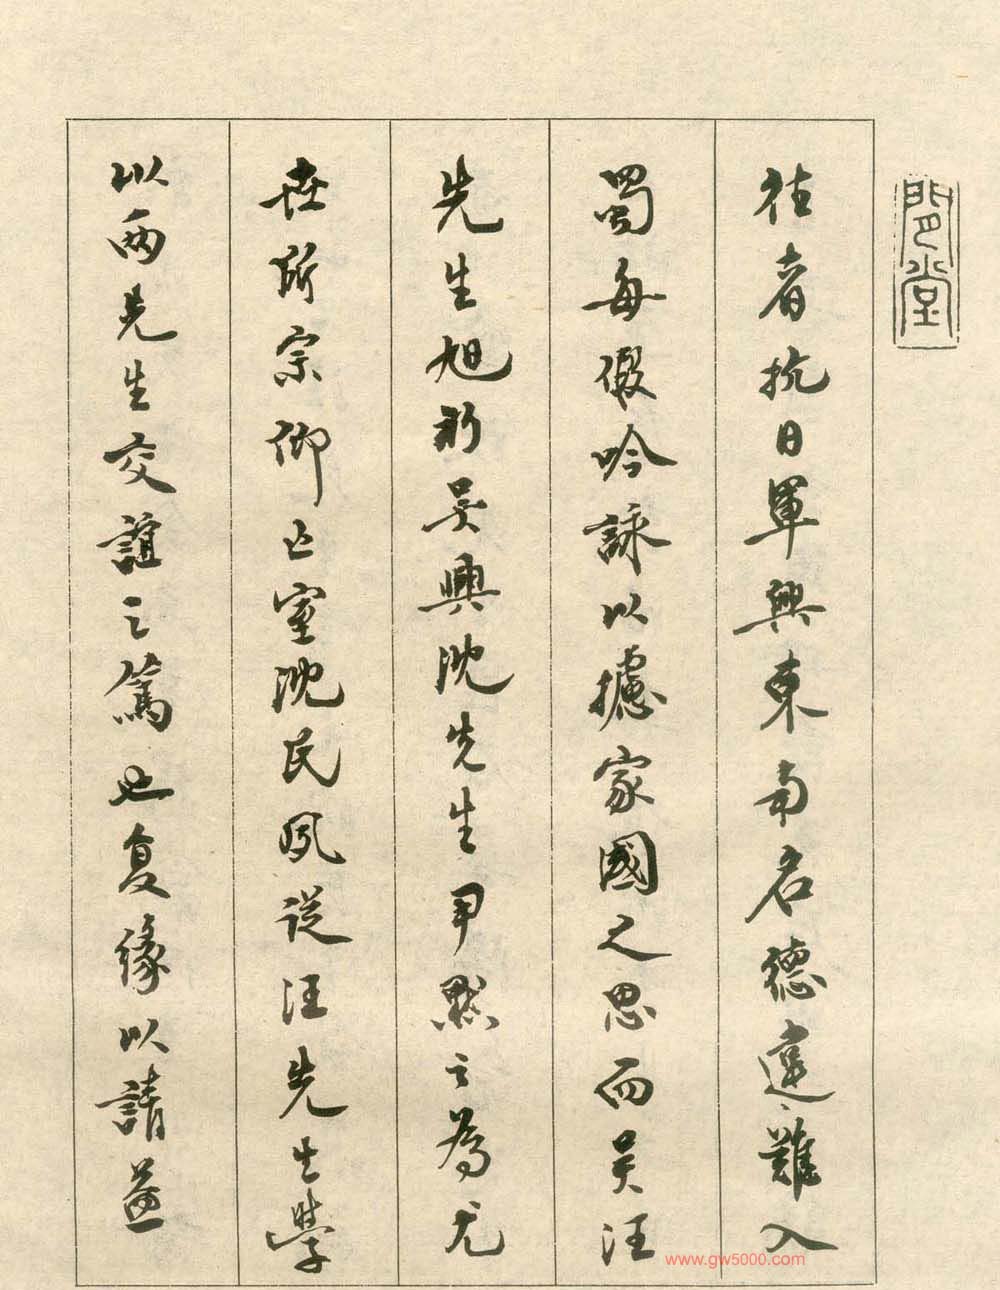 閑堂
往者抗日軍興東南名德違難入
蜀每假吟詠以攄家國之思而吴汪
先生旭初吴興沈先生尹默之為尤
世所宗仰亡室沈氏夙從汪先生學
以两先生交誼之篤也复緣以請益
www.gw5000.com